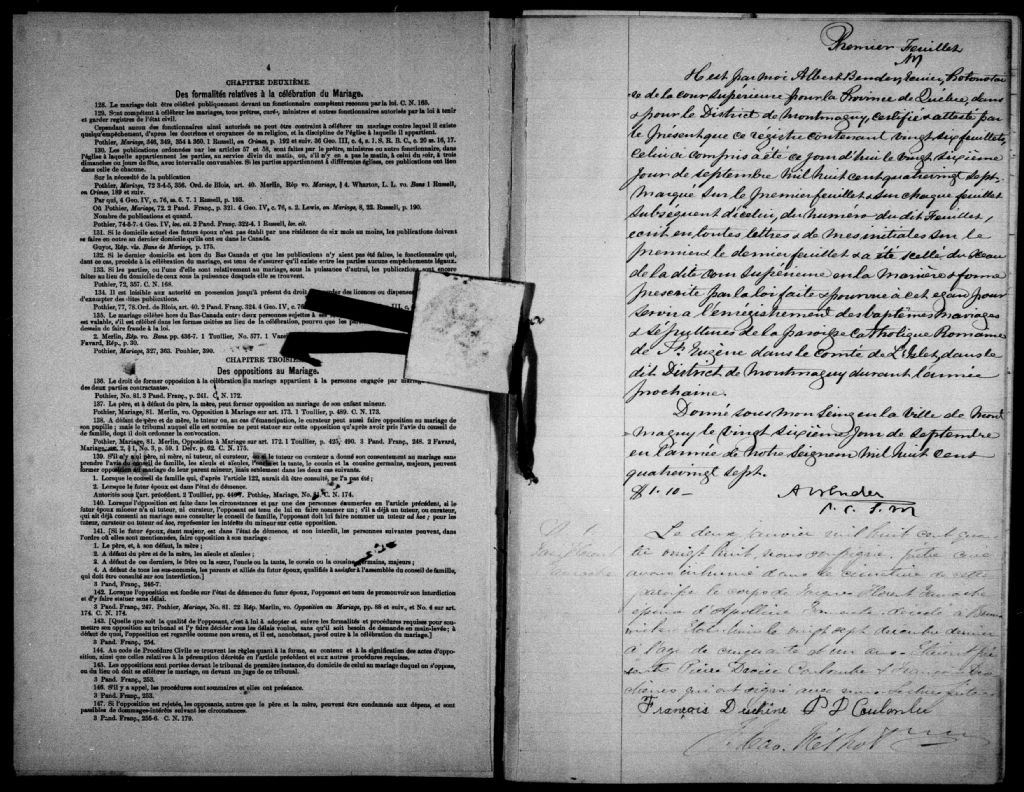 4
CHAPITRE DEUXIÈME.
Des formalités relatives à la célébration du Mariage.
128. Le mariage doit être célébré publiquement devant un fonctionnaire compétent reconnu par la loi. C. N. 165.
129. Sont compétent à célébrer les mariages, tous prêtres, curé, ministres et autres fonctionnaires autorisés par la loi à tenir
et garder registres de l'état civil.
Cependant aucun des fonctionnaires ainsi autorisés ne peut être contraint à célébrer un mariage contre lequel il existe
quelqu'empêchement, d'après les doctrines et croyances de sa religion, et la discipline de l'église à laquelle il appartient.
Pothier, Mariage, 346, 349, 354 & 360. 1 Russell, on Crimes, p. 192 et suiv. 36 Geo. III, c. 4, s. 1. S. R. B. C., c. 20 ss. 16, 17.
130. Les publications ordonnées par les articles 57 et 58, sont faites par le prêtre, ministres ou autre fonctionnaire, dans
l'église à laquelle appartiennent les parties, au service divin du matin, ou, s'il n'y en a pas le matin, à celui du soir, à trois
dimanches ou jours de fête, avec intervalle convenable. Si les parties appartiennent à différentes églises, ces publications ont lieu
dans celle de chacune.
Sur la nécessité de la publication
Pothier, Mariage, 72 3-4-5, 356. Ord. de Blois, art. 40. Merlin, Rép vo. Mariage, § 4. Wharton, L. L. vo. Bans 1 Russell,
en Crimes, 189 et suiv.
Par qui, 4 Geo. IV, c. 76, ss. 6. 7. 1 Russell, p. 193.
Où Pothier, Mariage, 72. 2 Pand. Franç., p. 321. 4 Geo. IV, c. 76, s. 2. Lewis, on Mariage, 8, 22. Russell, p. 190.
Nombre de publications et quand.
Pothier, 74-5-7. 4 Geo. IV, loc. cit. 2 Pand. Franç. 322-4. 1 Russell, loc. cit.
131. Si le domicile actuel des futurs époux n'est pas établi par une résidence de six mois au moins, les publications doivent
se faire en outre au dernier domicile qu'ils ont eu dans le Canada.
Guyot, Rép. vis. Bans de Mariage, p. 175.
132. Si le dernier domicile est hors du Bas Canada et que les publications n'y aient pas été faites, le fonctionnaire qui,
dans ce cas, procède à la célébration du mariage, est tenu de s'assurer qu'il n'existe entre les parties aucuns empêchements légaux.
133. Si les parties, ou l'une d'elle sont relativement au mariage, sous la puissance d'autrui, les publications sont encore
faites au lieu du domicile de ceux sous la puissance desquels elle se trouvent.
Pothier, 72, 357. C. N. 168.
134. Il est loisible aux autorité en possession jusqu'à présent du droit d'accorder des licences ou dispenses
d'exempter des dites publications.
Pothier, 77, 78. Ord. de Blois, art. 40. 2 Pand. Franç. 324. 4 Geo. IV, c. 76
135. Le mariage célébré hors du Bas-Canada entre deux personnes sujettes à ses
est valable, s'il est célébré dans les formes usitées au lieu de la célébration, pourvu que les
dessein de faire fraude à la loi.
2. Merlin, Rép. vo. Bans. pp. 436-7. 1 Toullier, No. 577. 1
Favard, Rép., p. 30.
Pothier, Mariage, 327, 363. Pouhier, 390.
CHAPITRE TROISIÈME
Des oppositions au Mariage.
136. Le droit de former opposition à la célébration du mariage appartient à la personne engagée par mariage
des deux parties contractantes.
Pothier, No. 81. 3 Pand. Franç., p. 241. C. N. 172.
137. Le père, et à défaut du père, la mère, peut former opposition au mariage de son enfant mineur.
Pothier, Mariage, 81. Merlin, vo. Opposition à Mariage sur art. 173. 1 Toullier, p. 489. C. N. 173.
138. A défaut de père et de mère, le tuteur, ou, au cas d'émancipation, le curateur peut aussi former opposition au mariage de
son pupille; mais le tribunal auquel elle est soumise ne peut statuer sur cette opposition qu'après avoir pris l'avis du conseil de
famille, dont il doit ordonner la convocation.
Pothier, Mariage, 81. Merlin, Opposition à Mariage sur art. 172. 1 Toullier, p. 425, 490. 3 Pand. Franç., 248. 2 Favard,
Mariage, sec. 2, § 1, No. 3, p. 59. 1 Delv. p. 62. C. N. 175.
139. S'il n'y a ni père, ni mère, ni tuteur, ni curateur, ou si le tuteur ou curateur a donné son consentement au mariage sans
prendre l'avis du conseil de famille, les aïeuls et aïeules, l'oncle et la tante, le cousin et la cousine germains, majeurs, peuvent
former opposition au mariage de leur parent mineur, mais seulement dans les deux cas suivants.
1. Lorsque le conseil de famille qui, d'après l'article 122, aurait dû être consulté, ne l'a pas été;
2. Lorsque le futur époux est dans l'état de démence.
Autorités sous l'art. précédent. 2 Toullier, pp. Pothier, Mariage, No. 81. C. N. 174.
140. Lorsque l'opposition est faite dans les circonstances et par une des personnes énumérées en l'article précédent, si le
futur époux mineur n'a ni tuteur, ni curateur, l'opposant est tenu de lui en faire nommer un; s'il a déjà un tuteur, ou curateur,
qui ait déjà consenti au mariage sans consulter le conseil de famille, l'opposant doit lui faire nommer un tuteur ad hoc; pour les
tuteur, curateur ou tuteur ad hoc, représenter les intérêts du mineur sur cette opposition.
141. [Si le futur époux, étant majeur, est dans l'état de démence, et non interdit, les personnes suivantes peuvent, dans
l'ordre où elles sont mentionnées, faire opposition à son mariage:
1. Le père, et, à son défaut, la mère;
2. A défaut du père et de la mère, les aïeuls et aïeules;
3. A défaut de ces derniers, le frère ou la sœur, l'oncle ou la tante, le cousin ou la cousine germains, majeurs;
4. A défaut de tous les sus-nommés, les parents et alliés du futur époux, qualifiés à assister à l'assemblée du conseil de famille,
qui doit être consulté sur son interdiction.]
3 Pand. Franç., 246-7.
142. Lorsque l'opposition est fondée sur l'état de démence du futur époux, l'opposant est tenu de promouvoir son interdiction
et d'y faire statuer sans délai.
3 Pand. Franç., 247. Pothier, Mariage, No. 81. 22 Rép. Merlin, vo. Opposition au Mariage, pp. 58 et suiv., et No. 4 sur art.
174. C. N. 174.
143. [Quelle que soit la qualité de l'opposant, c'est à lui à adopter et suivre les formalités et procédures requises pour sou-
mettre son opposition au tribunal et l'y faire décider sous les délais voulus, sans qu'il soit besoin de demande en main-levée; à
défaut de quoi, l'opposition est regardée comme non avenu, et il est, nonobstant, passé outre à la célébration du mariage.]
3 Pand. Franç., 254.
144. Au code de Procédure Civile se trouvent les règles quant à la forme, au contenu et à la signification des actes d'oppo-
sition, ainsi que celles relatives à la péremption décrétée en l'article précédent et aux autres procédures requises.
145. Les oppositions sont portées devant le tribunal de première instance, du domicile de celui au mariage duquel on s'oppose,
ou du lieu où doit se célébrer le mariage, ou devant un juge de ce tribunal.
3 Pand. Franç., 253.
146. S'il y a appel, les procédures sont sommaires et elles ont préséance.
3 Pand. Franç., 253.
147. Si l'opposition est rejetée, les opposants, autres que le père et la mère, peuvent être condamnés aux dépens, et sont
passibles de dommages-intérêts suivant les circonstances.
3 Pand. Franç., 255-6. C. N. 179.
Premier Feuillet
Il est par moi Albert Bender, Ecuier, Protonotai-
re de la cour supérieure pour la Province de Québec, dans
& pour le District de Montmagny, certifié & attesté par
le présent que ce registre contenant vingt six feuillets,
celui ci compris a été ce jour d'hui le vingt sixième
jour de septembre Mil huit cent quatre vingt sept
marqué sur le premier feuillet & sur chaque feuillet
subséquent d'icelui, du numéro du dit Feuillet,
écrit en toutes lettres & de mes initiales sur le
premier & le dernier feuillet & a été scellé du Sceau
de la dite cour supérieure en la manière & forme
prescrite par la loi faite & pourvue à cet égard pour
servir à l'enrégistrement des baptêmes, mariages
& sépultures de la paroisse Catholique Romaine
de St. Eugène dans le Comté de L'Islet, dans le
dit District de Montmagny durant l'année
prochaine.
Donné sous mon Seing en la Ville de Mont
magny le vingt sixième jour de septembre
en l'année de notre Seigneur mil huit cent
quatrevingt sept.
$1.10 – A Bender
P. C. S. M
Le deux janvier mil huit cent quatre
vingt huit, nous soussigné, prêtre curé
avons inhumé dans le cimetière de cette
paroisse le corps de
époux d'Apolline décédé à
le vingt sept décembre dernier
à l'âge de cinquante et un ans. Présents
Pierre Coulombe & François
qui ont signé avec nous
François Duchêne P D Coulombe